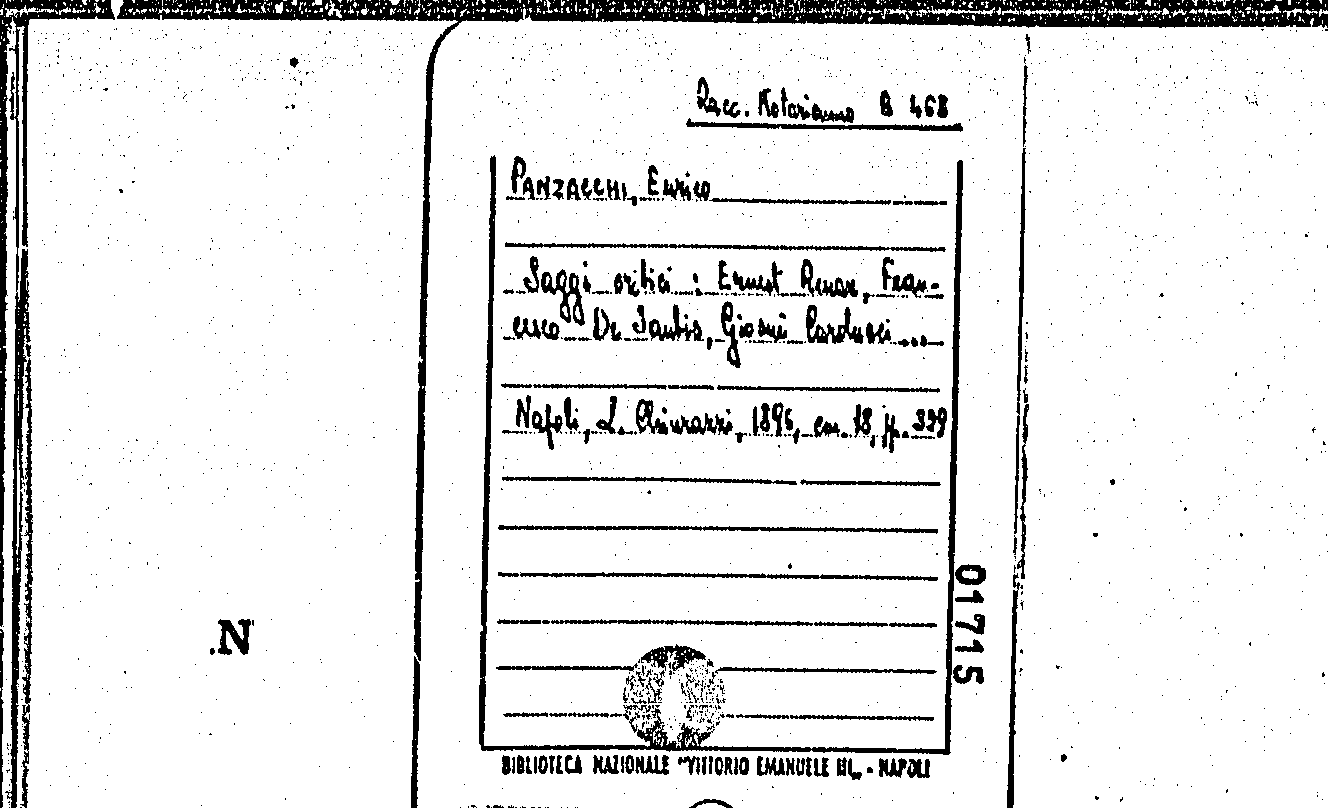 Racc. Notarianno B 468
PANZACCHI, Enrico
Saggi critici : Ernest Renan, Fran-
cesco De Sanctis, Giosuè Carducci ...
Napoli, L. Chiurazzi, 1896, cm. 18, pp. 339
01715
.N
BIBLIOTECA NAZIONALE "VITTORIO EMANUELE III„ - NAPOLI